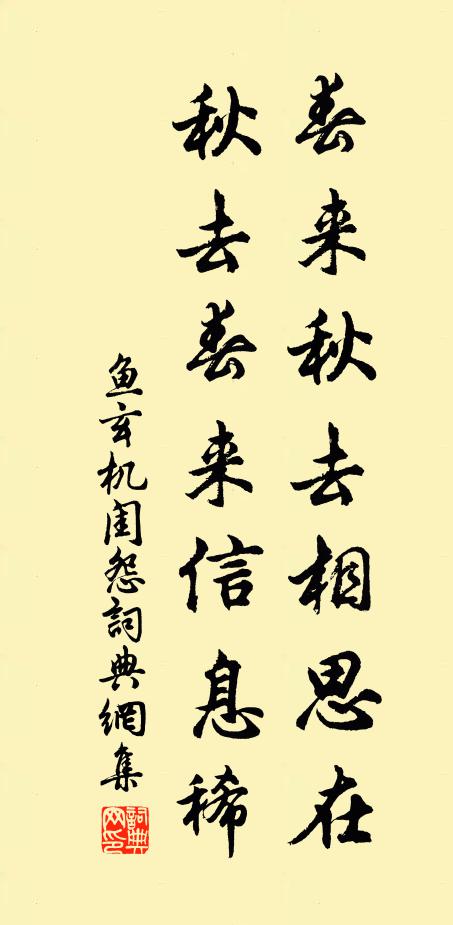 春来秋去相思在
秋去春来信息稀
鱼玄机闺怨詞典網集
詞典
网印